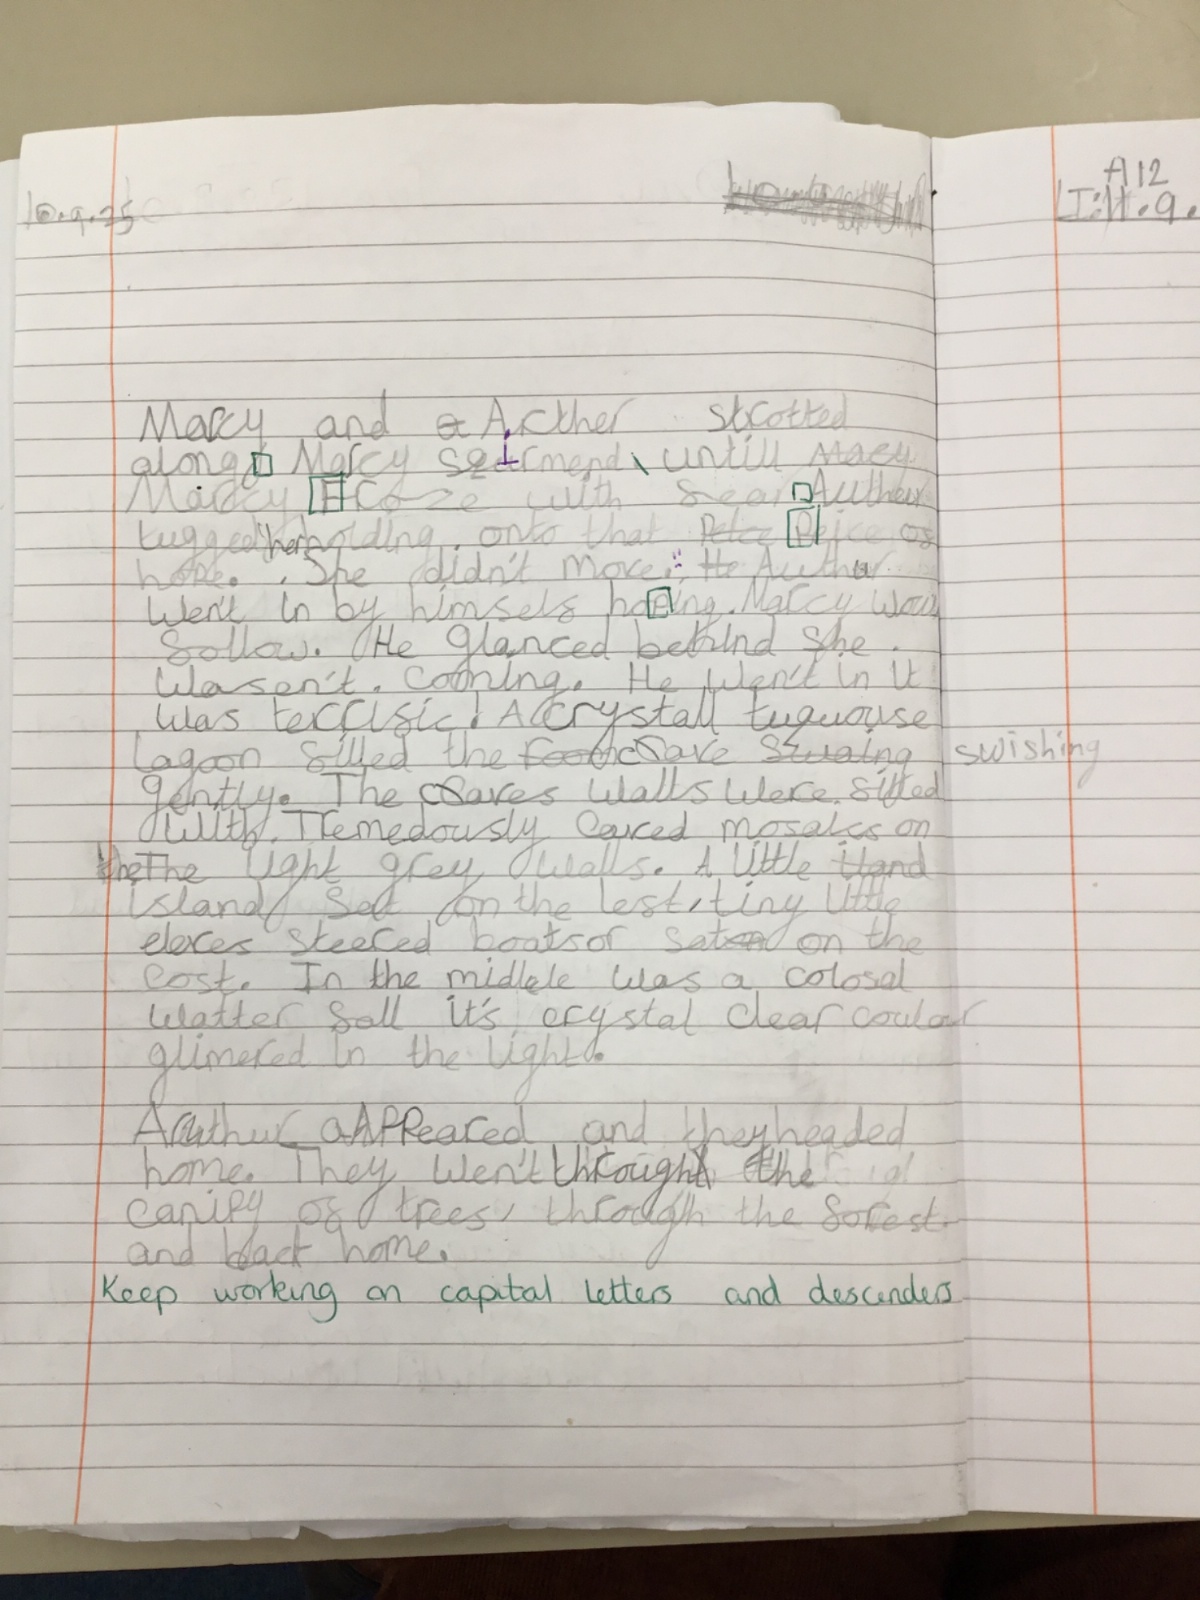 10.9.25
A12
I:11.9.
Marcy and Arther strotted
along Marcy untill
Marcy Froze with fear Author
tugged her holding onto that of
hope. She didn't move. He Author
Wen't in by himself hoping Marcy
follow. He glanced behind She
Wasen't. Coming. He Wen't in it
was terrific! A crystall tuquouse
lagoon filled the cave swishing
gently. The caves Walls were filled
With Tremedously carved mosaics on
the light grey walls. A little
island Sat on the left, tiny little
elves steered boats or sat on the
cost. In the middle was a colosal
Watter fall it's crystal clear coulour
glimered in the light.
Author Appeared and they headed
home. They Wen't through the
canipy of trees, through the forest
and back home.
Keep working on capital letters and descenders